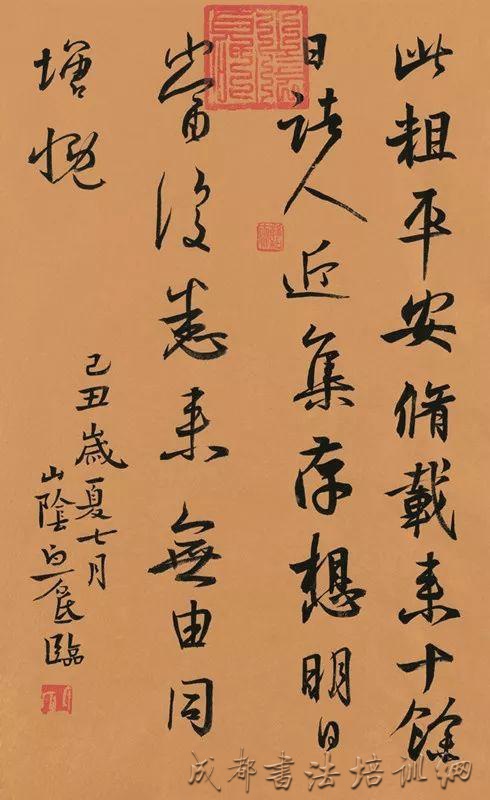 此粗平安脩載来十餘
日諸人近集存想明日
當復悉来無由同
增慨
己丑歲夏七月
山陰臨
成都書法培训網